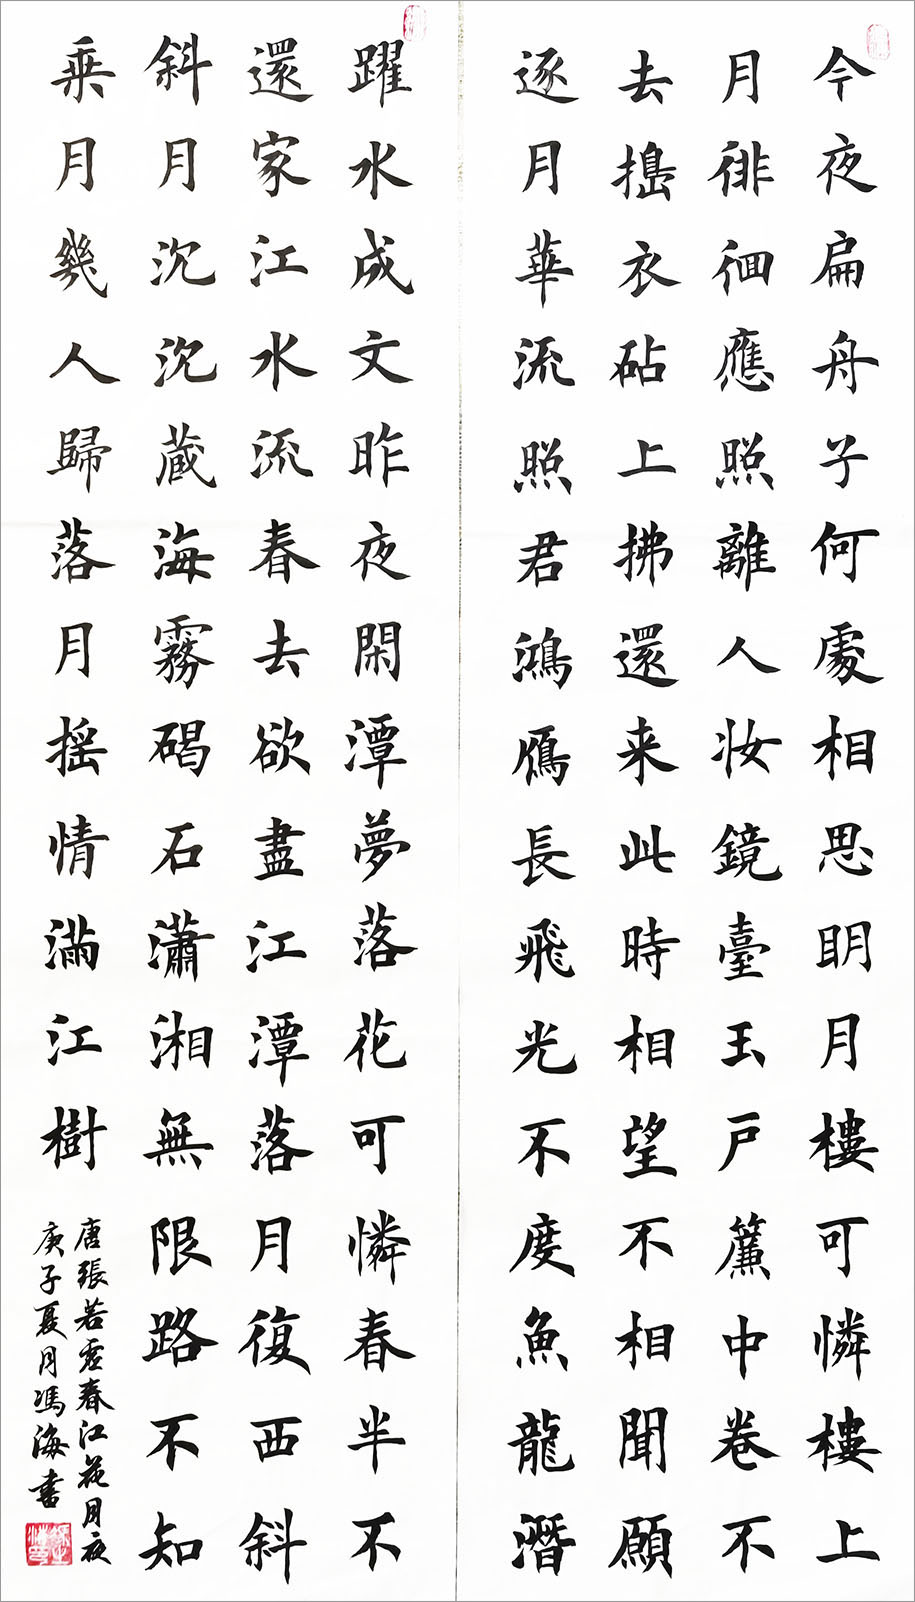 今夜扁舟子何處相思明月樓可憐樓上
月徘徊應照離人妝鏡臺玉戶簾中卷不
去搗衣砧上拂還来此時相望不相聞願
逐月華流照君鴻鴈長飛光不度魚龍潛
躍水成文昨夜閑潭夢落花可憐春半不
還家江水流春去欲盡江潭落月復西斜
斜月沉沉藏海霧碣石瀟湘無限路不知
乗月幾人歸落月摇情滿江樹
唐張若虛春江花月夜
庚子夏月馮海書